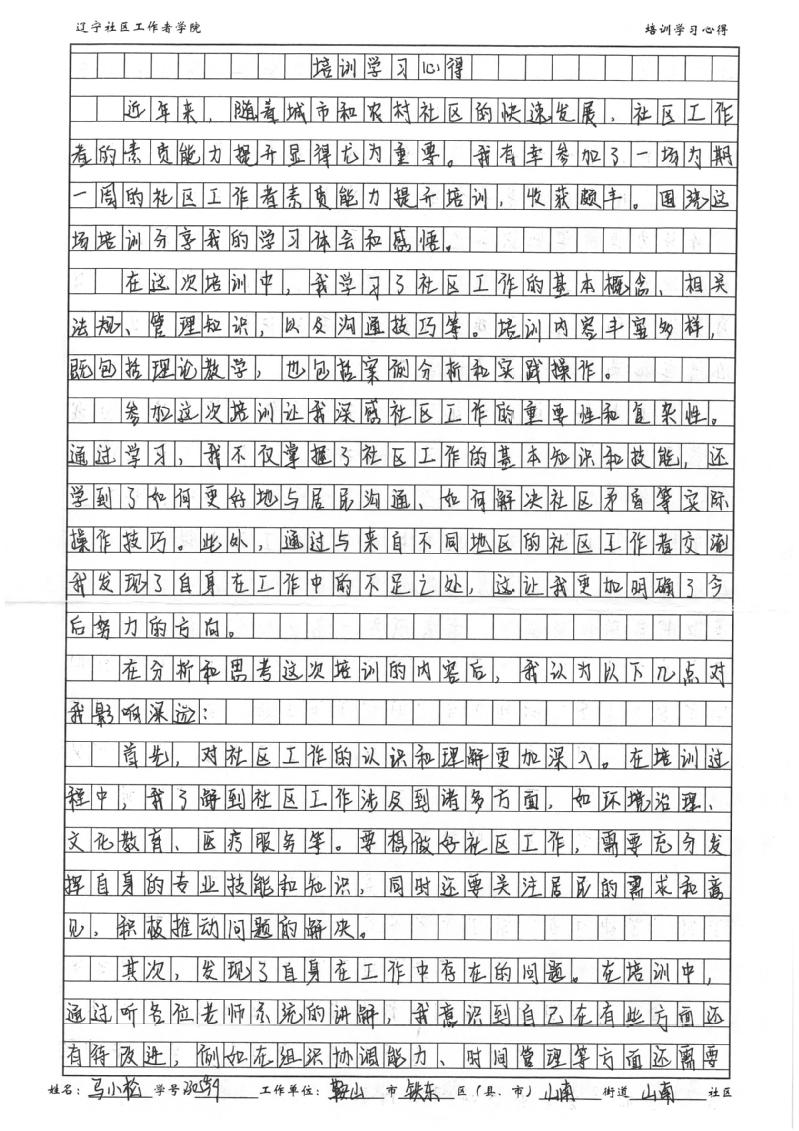 辽宁社区工作者学院 培训学习心得
培训学习心得
近年来,随着城市和农村社区的快速发展,社区工作
者的素质能力提升显得尤为重要。我有幸参加了一场为期
一周的社区工作者素质能力提升培训,收获颇丰。围绕这
场培训分享我的学习体会和感悟。
在这次培训中,我学习了社区工作的基本概念、相关
法规、管理知识,以及沟通技巧等。培训内容丰富多样,
既包括理论教学,也包括案例分析和实践操作。
参加这次培训让我深感社区工作的重要性和复杂性。
通过学习,我不仅掌握了社区工作的基本知识和技能,还
学到了如何更好地与居民沟通、如何解决社区矛盾等实际
操作技巧。此外,通过与来自不同地区的社区工作者交流
我发现了自身在工作中的不足之处,这让我更加明确了今
后努力的方向。
在分析和思考这次培训的内容后,我认为以下几点对
我影响深远:
首先,对社区工作的认识和理解更加深入。在培训过
程中,我了解到社区工作涉及到诸多方面,如环境治理、
文化教育、医疗服务等。要想做好社区工作,需要充分发
挥自身的专业技能和知识,同时还要关注居民的需求和意
见,积极推动问题的解决。
其次,发现了自身在工作中存在的问题。在培训中,
通过听各位老师系统的讲解,我意识到自己在有些方面还
有待改进,例如在组织协调能力、时间管理等方面还需要
姓名:马小松 学号 工作单位:鞍山 市 铁东 区(县、市)山南 街道 山南 社区